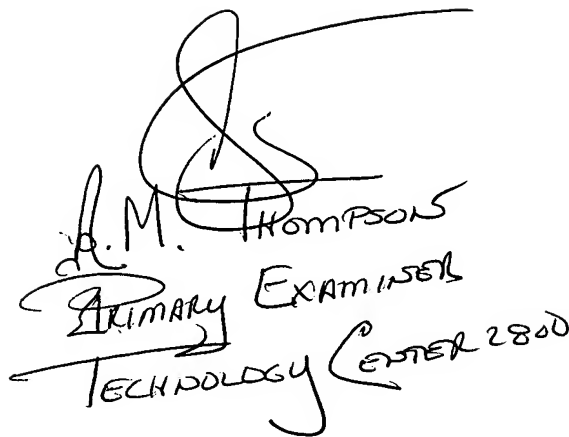 A.M. Thompson
Primary Examiner
Technology Center 2800